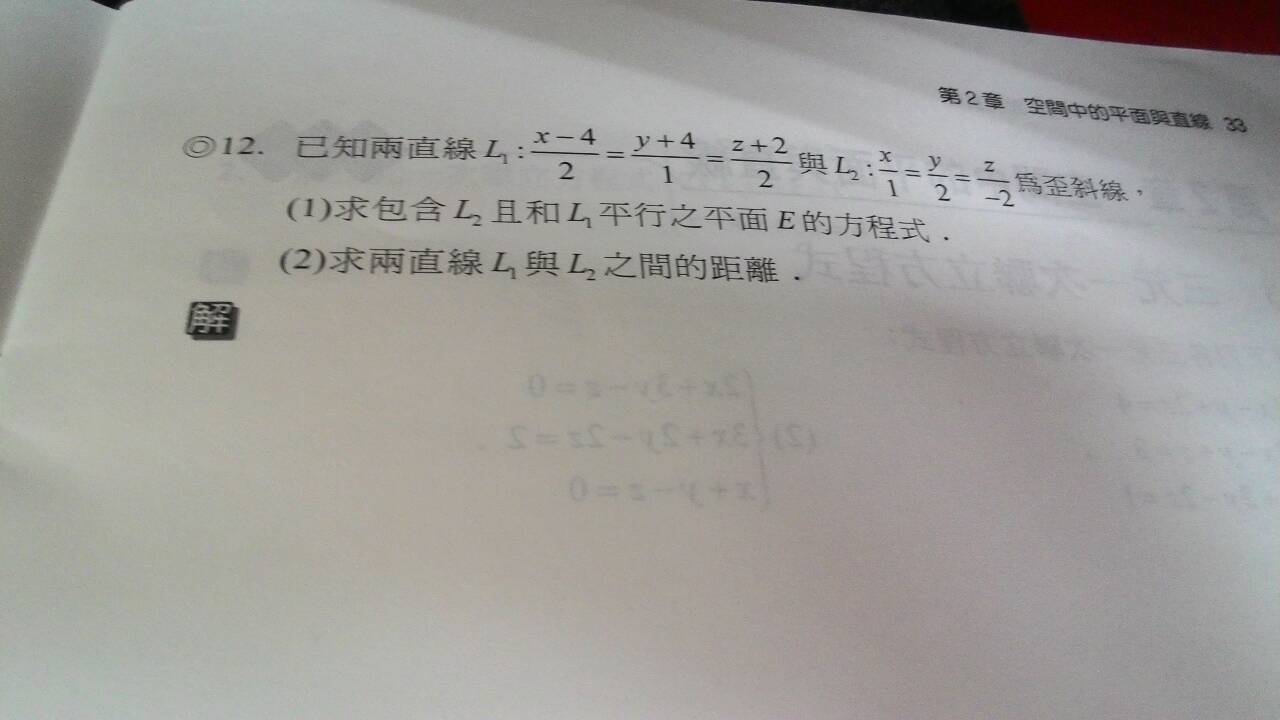 第2章 空間中的平面與直線 33
◎12. 已知兩直線 L₁：(x－4)/2＝(y＋4)/1＝(z＋2)/2 與 L₂：x/1＝y/2＝z/－2 為歪斜線，
(1)求包含 L₂ 且和 L₁ 平行之平面 E 的方程式．
(2)求兩直線 L₁ 與 L₂ 之間的距離．
解
2x＋3y－z＝0
(2) 3x＋2y－2z＝2．
x＋y－z＝0